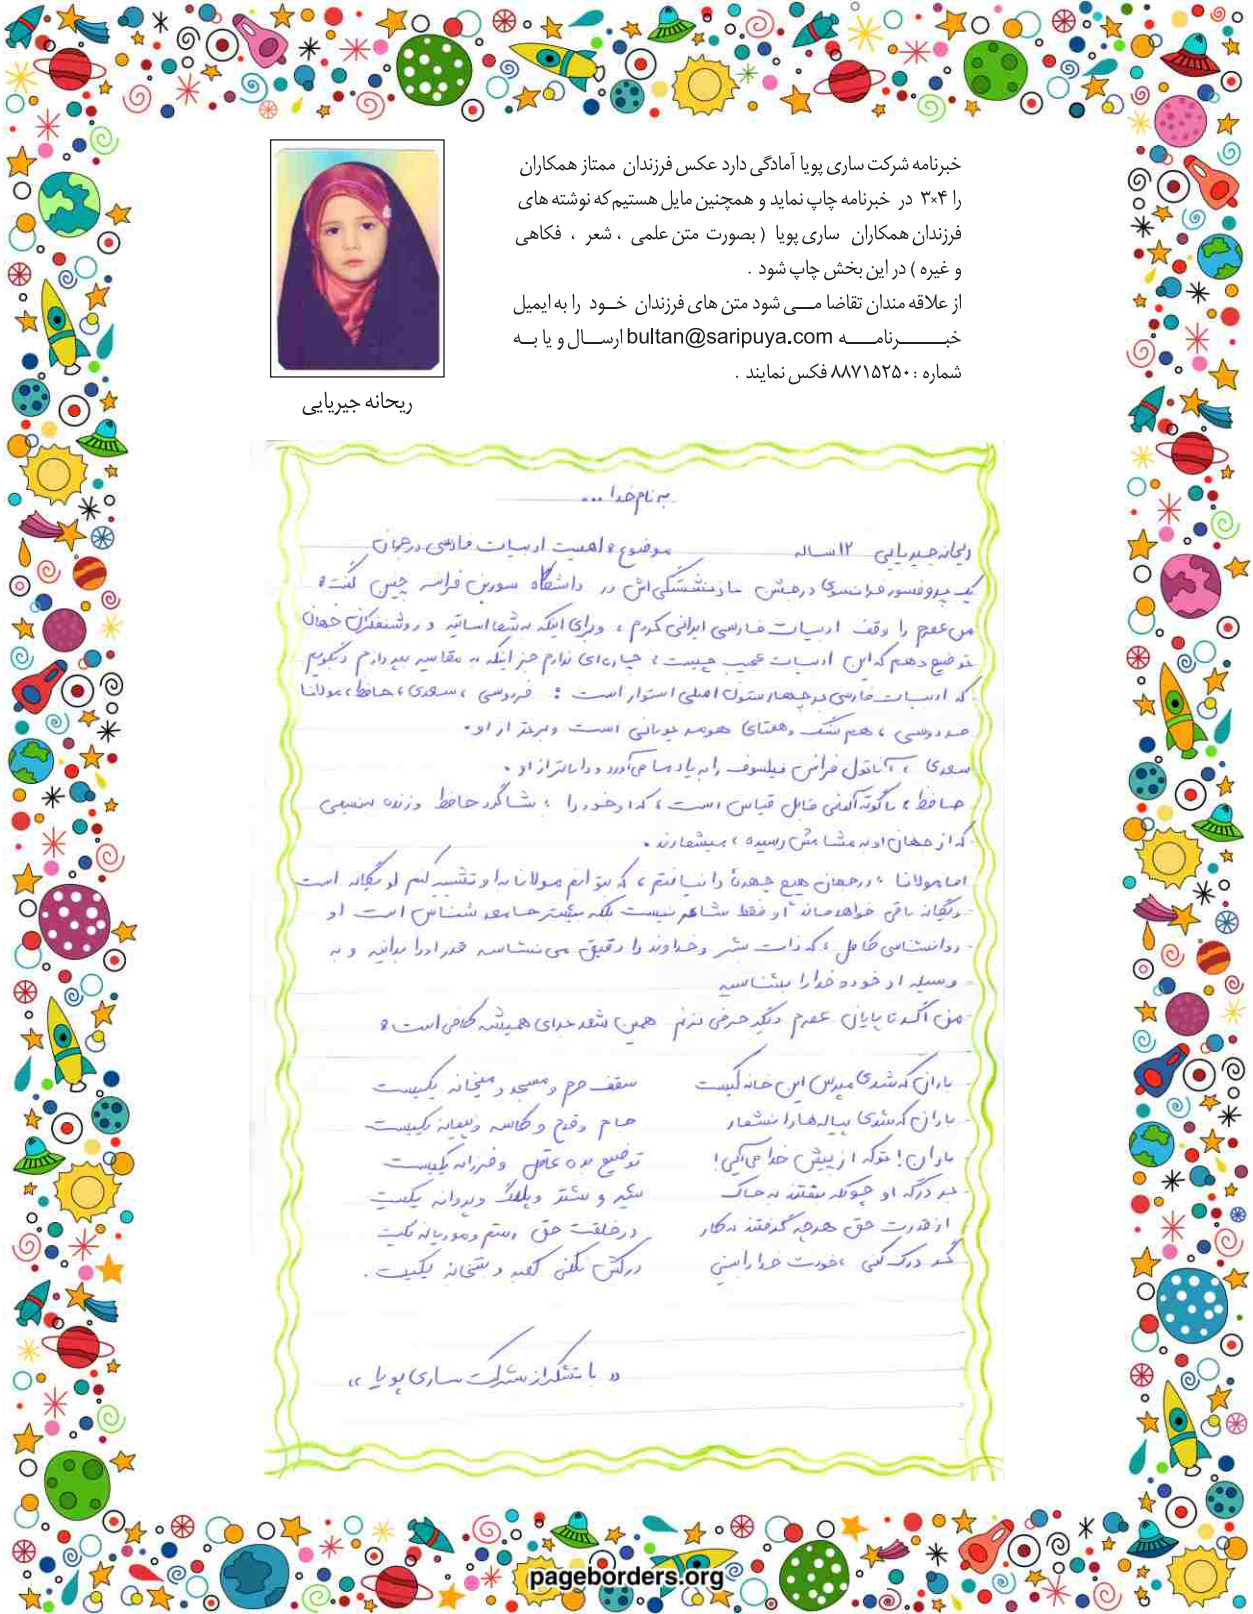 خبرنامه شرکت ساری پویا آمادگی دارد عکس فرزندان ممتاز همکاران
را ۴×۳ در خبرنامه چاپ نماید و همچنین مایل هستیم که نوشته های
فرزندان همکاران ساری پویا ( بصورت متن علمی ، شعر ، فکاهی
و غیره ) در این بخش چاپ شود .
از علاقه مندان تقاضا مـــی شود متن های فرزندان خــود را به ایمیل
خبـــــــرنامـــــه bultan@saripuya.com ارســال و یا بــه
شماره : ۸۸۷۱۵۲۵۰ فکس نمایند .
ریحانه جیریایی
به نام خدا ...
ریحانه جیریایی ۱۲ ساله موضوع : اهمیت ادبیات فارسی در جهان
یک پروفسور فرانسوی در جشن بازنشستگی اش در دانشگاه سوربن فرانسه چنین گفت :
من عمرم را وقف ادبیات فارسی ایرانی کردم ، و برای اینکه به شما اساتید و روشنفکران جهان
توضیح دهم که این ادبیات عجیب چیست ، چاره ای ندارم جز اینکه به مقایسه بپردازم و بگویم
که ادبیات فارسی بر چهار ستون اصلی استوار است : فردوسی ، سعدی ، حافظ ، مولانا
فردوسی ، هم سنگ و همتای هومر یونانی است و برتر از او .
سعدی ، آناتول فرانس فیلسوف را به یاد ما می آورد و داناتر از او .
حافظ ، با گوته آلمانی قابل قیاس است ، که او خود را ، شاگرد حافظ و زنده به نسیمی
که از جهان او به مشامش رسیده ، میشمارند .
اما مولانا ، در جهان هیچ چهره ای را نیافتم ، که بتوانم مولانا را به او تشبیه کنم او یگانه است
و یگانه باقی خواهد ماند او فقط شاعر نیست بلکه بیشتر جامعه شناس است او
روانشناسی کامل ، که ذات بشر و خداوند را دقیق می شناسد قدر او را بدانید و به
وسیله او خود و خدا را بشناسید
من اگر تا پایان عمرم دیگر حرفی نزنم همین شعر برای همیشه کافی است :
باران که شدی مپرس این خانه کیست سقف حرم و مسجد و میخانه یکیست
باران که شدی پیاله ها را نشمار جام و قدح و کاسه و پیمانه یکیست
باران ! تو که از پیش خدا می آیی ! توضیح بده عاقل و فرزانه یکیست
بر درگه او چونکه بیفتند به خاک شیر و شتر و پلنگ و پروانه یکیست
از قدرت حق هرچه گرفتند به کار در خلقت حق رستم و موریانه یکیست
گر درک کنی ، خودت خدا را بینی درکش نکنی کعبه و بتخانه یکیست .
« با تشکر از شرکت ساری پویا »
pageborders.org